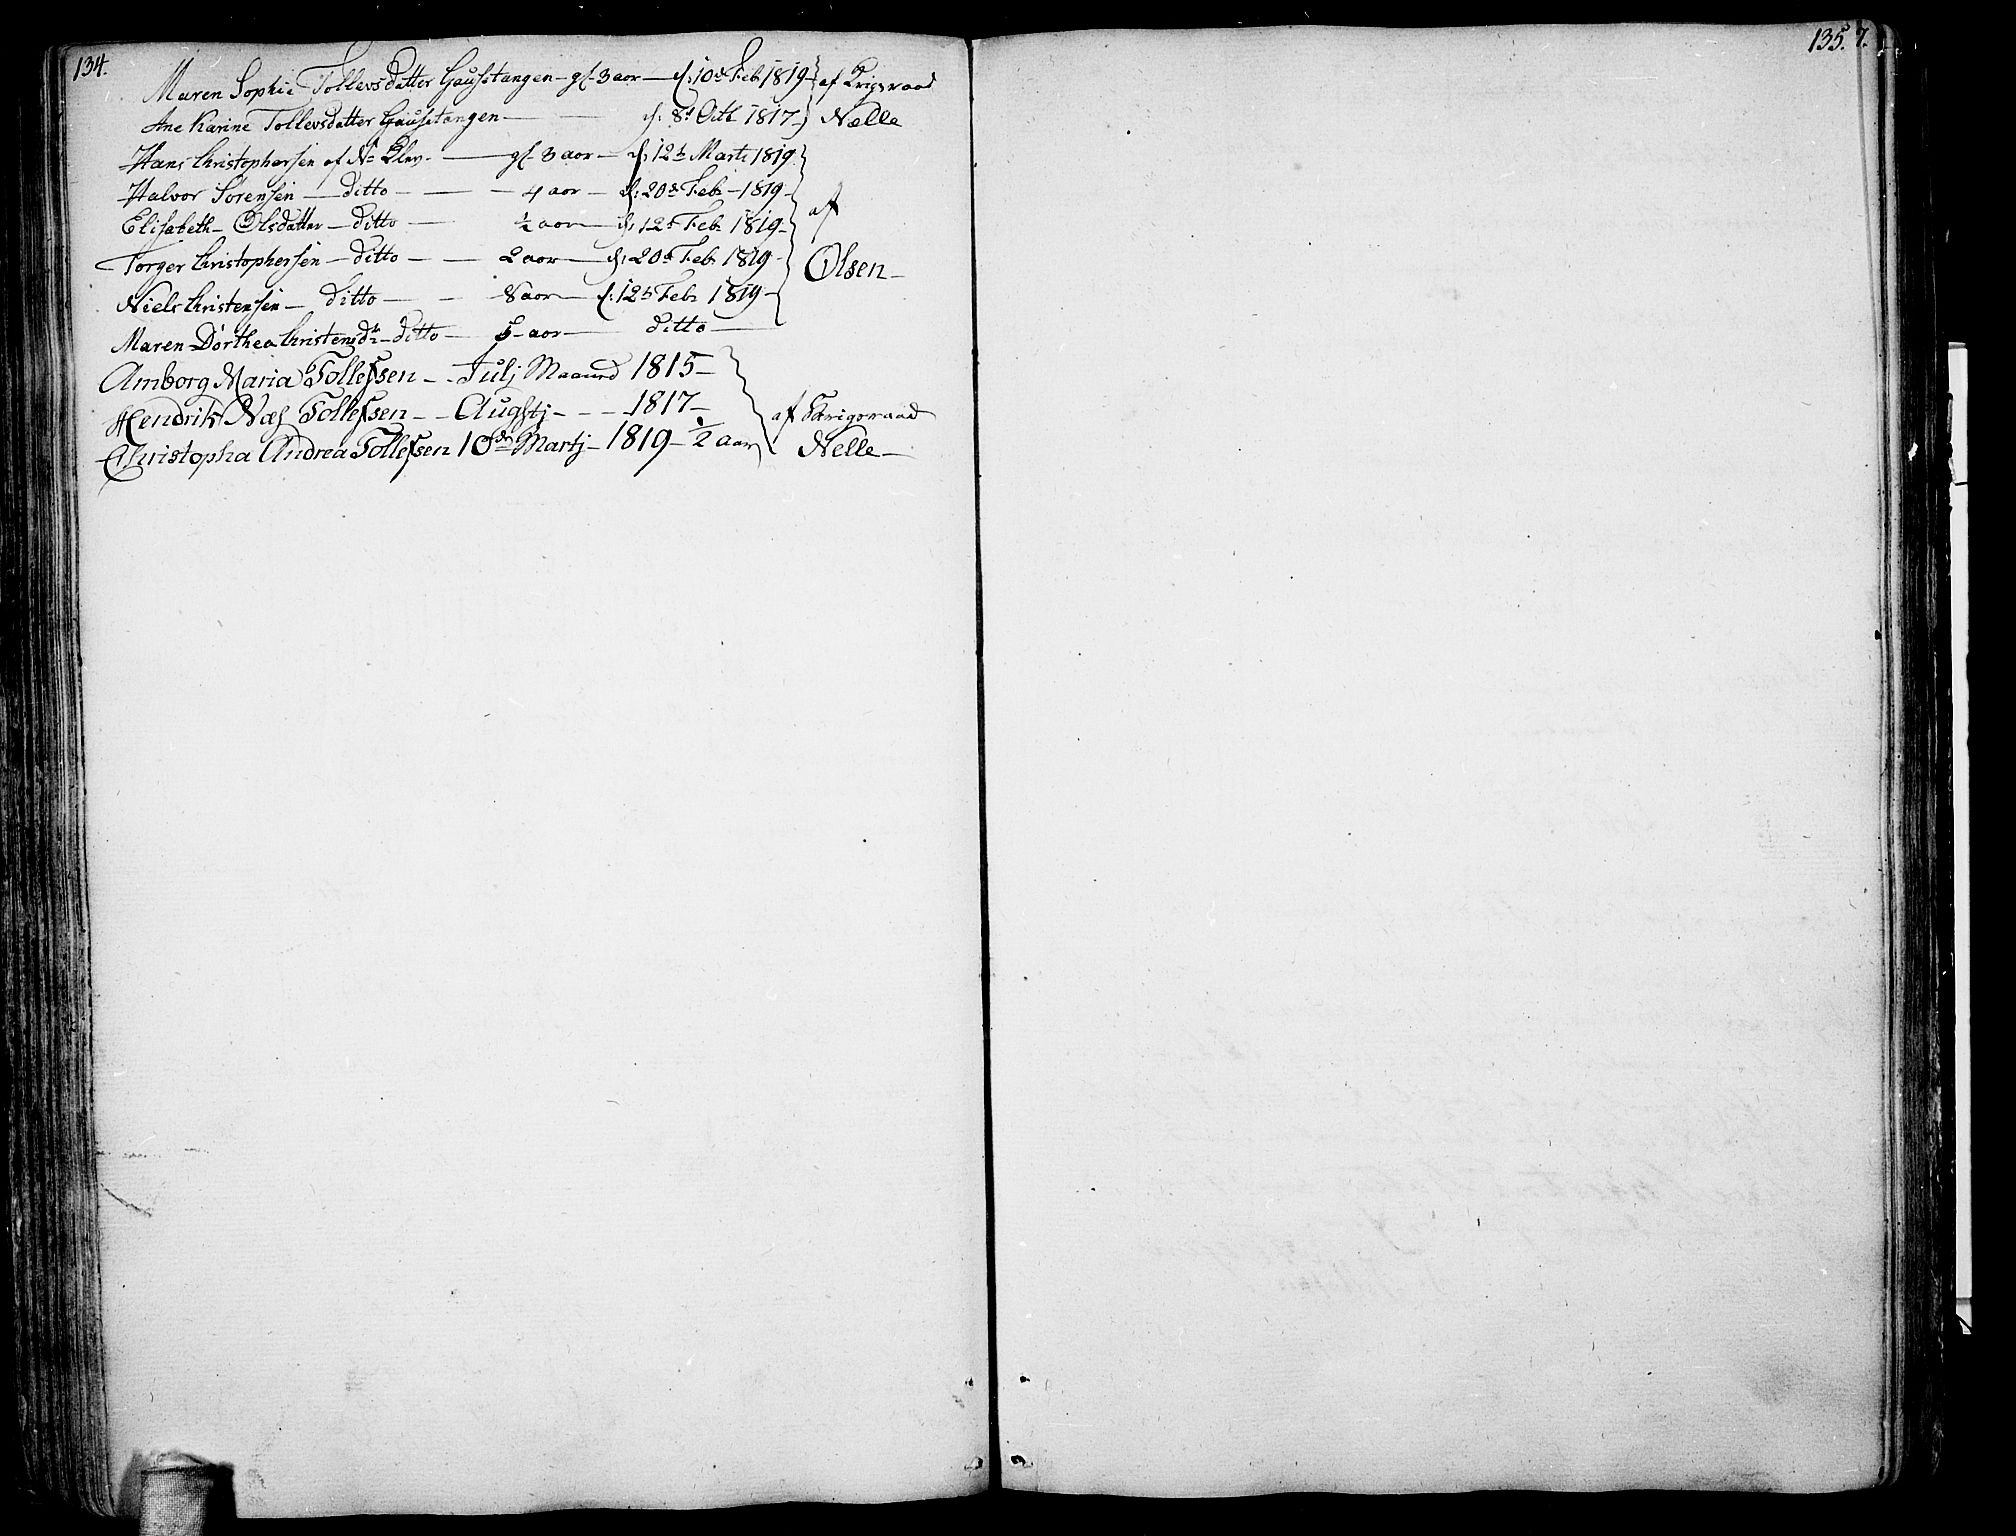 134.
Maren Sophie Tollevsdatter Gaustangen - gl. 3 aar - d: 10de Feb 1819 - af Krigsraad
Ane Karine Tollevsdatter Gaustangen - d: 8d Octb 1817 - Nælle
Hans Christophersen af Nr Klev - gl. 3 aar - d: 12te Marti 1819
Halvor Sörensen - ditto - 4 aar - d: 20de Feb - 1819 -
Elisabeth Olsdatter - ditto - ½ aar - d: 12t Feb 1819 - af
Torger Christophersen - ditto - 2 aar - d: 20d Feb 1819 - Olsen -
Niels Christensen - ditto - 8 aar - d: 12te Feb 1819 -
Maren Dorthea Christensdtr - ditto - 5 - aar - ditto -
Amborg Maria Tollefsen - Julj Maaned 1815 -
Hendrik Næs Tollefsen - Augstj - 1817 - af Krigsraad
Christopha Andrea Tollefsen 10de Martj - 1819 - ½ aar Nelle -
135. 7.